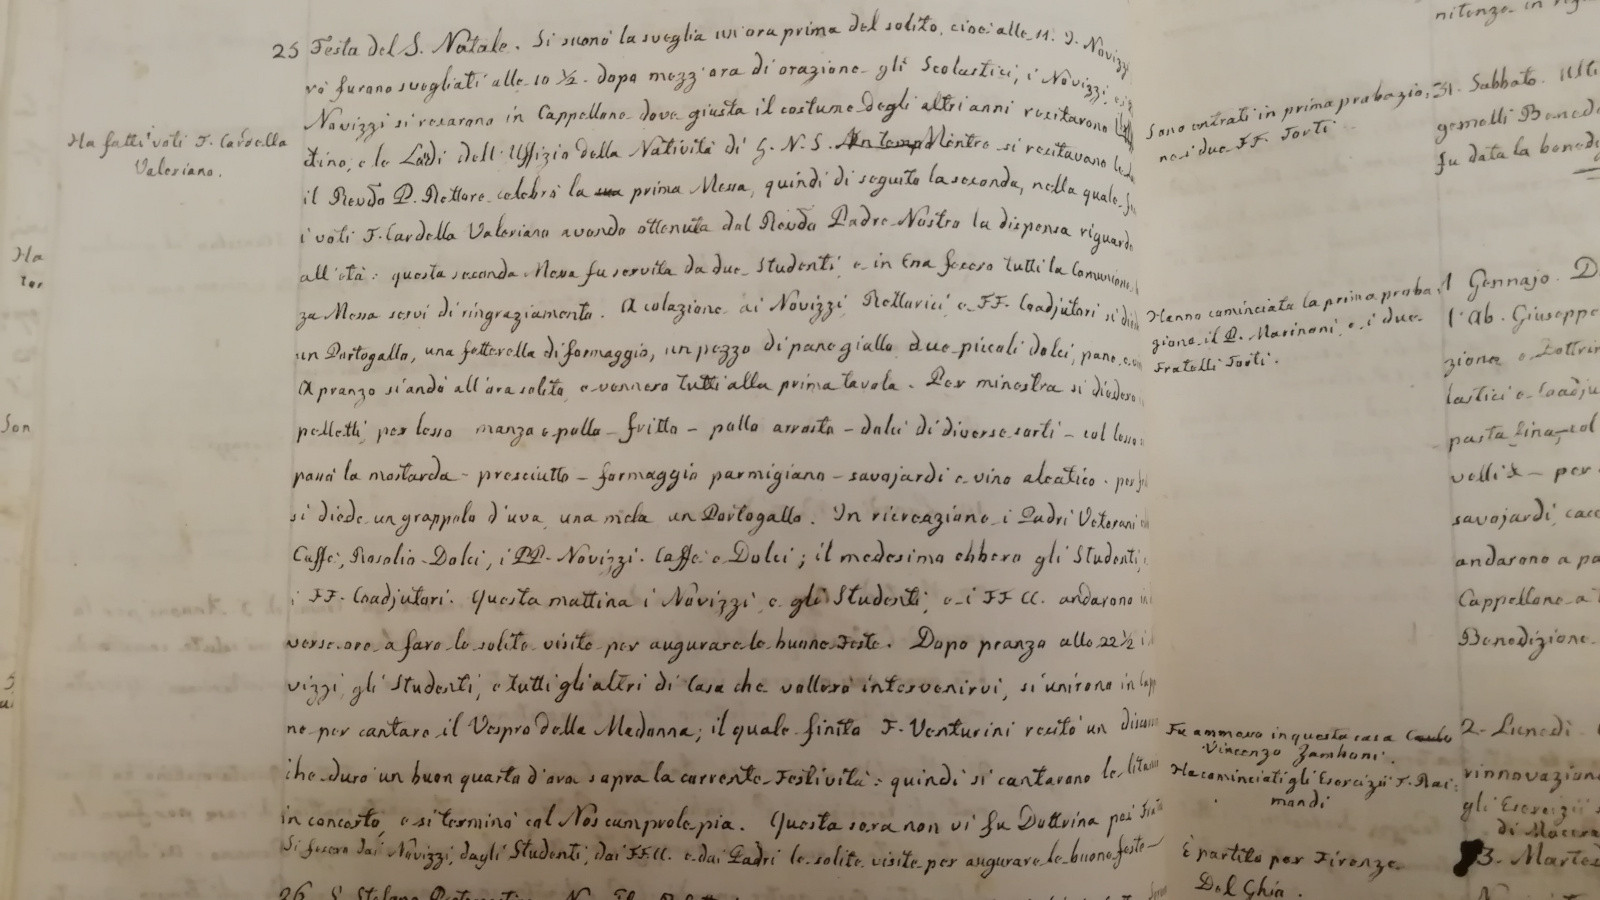 Ha fatti i voti F. Cardella
Valeriano.
25 Festa del S. Natale. Si suonò la sveglia un'ora prima del solito, cioè alle 11. I Novizzi
rò furono svegliati alle 10 ½. dopo mezz'ora di orazione gli Scolastici, i Novizzi
Novizzi si recarono in Cappellone dove giusta il costume degli altri anni recitarono
tino, e le Laudi dell'Uffizio della Natività di G. N. S. Mentre si recitavano le
il Revdo P. Rettore celebrò la prima Messa, quindi di seguito la seconda, nella quale
i voti F. Cardella Valeriano avendo ottenuta dal Revdo Padre Nostro la dispensa riguardo
all'età: questa seconda Messa fu servita da due Studenti, e in Ena fecero tutti la Comunione.
za Messa servì di ringraziamento. A colazione ai Novizzi Rettorici e FF. Coadjutori si
un Portogallo, una fetterella di formaggio, un pezzo di pane giallo due piccoli dolci, pane, e
A pranzo si andò all'ora solita, e vennero tutti alla prima tavola. Per minestra si diedero
pelletti, per lesso manzo e pollo – fritto – pollo arrosto – dolci di diverse sorti – col lesso
passò la mostarda – presciutto – formaggio parmigiano – savojardi e vino aleatico. per
si diede un grappolo d'uva, una mela un Portogallo. In ricreazione i Padri Veterani
Caffè, Rosolio Dolci, i PP. Novizzi. Caffè e Dolci; il medesimo ebbero gli Studenti,
i FF. Coadjutori. Questa mattina i Novizzi, e gli Studenti, e i FF CC. andarono in
verse ore a fare le solite visite per augurare le buone Feste. Dopo pranzo alle 22 ½ i
vizzi, gli Studenti, e tutti gli altri di Casa che vollero intervenirvi, si unirono in
ne per cantare il Vespro della Madonna; il quale finito F. Venturini recitò un
che durò un buon quarto d'ora sopra la corrente Festività: quindi si cantarono le
in concerto, e si terminò col Nos cum prole pia. Questa sera non vi fu Dottrina pei
Si fecero dai Novizzi, dagli Studenti, dai FF. CC. e dai Padri le solite visite per augurare le buone feste –
26
Ha
Son
Sono entrati in prima probazio:
ne i due FF. Torti
Hanno cominciata la prima proba:
zione il P. Marinoni, e i due
Fratelli Torti.
Fu ammesso in questa casa
Vincenzo Zamboni.
Ha cominciati gli Esercizii F. Rai:
mondi
È partito per Firenze
Del Ghia.
31. Sabbato.
gemelli
fu data la
1 Gennajo.
l'Ab. Giuseppe
zione e
lastici e
pasta fina, col
savojardi,
andarono a
Cappellone a
Benedizione
2. Lunedì.
rinnovazion
gli Esercizii
di
3. Marte